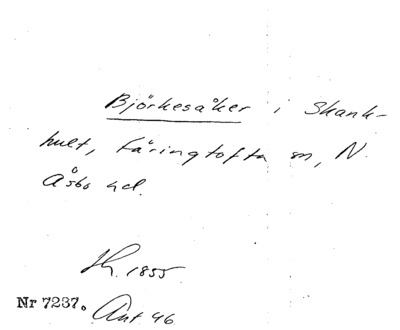 Björkesåker i Skank-
hult, Färingtofta sn, N.
Åsbo hd.
Th. 1855
Nr 7237. Ant. 46.